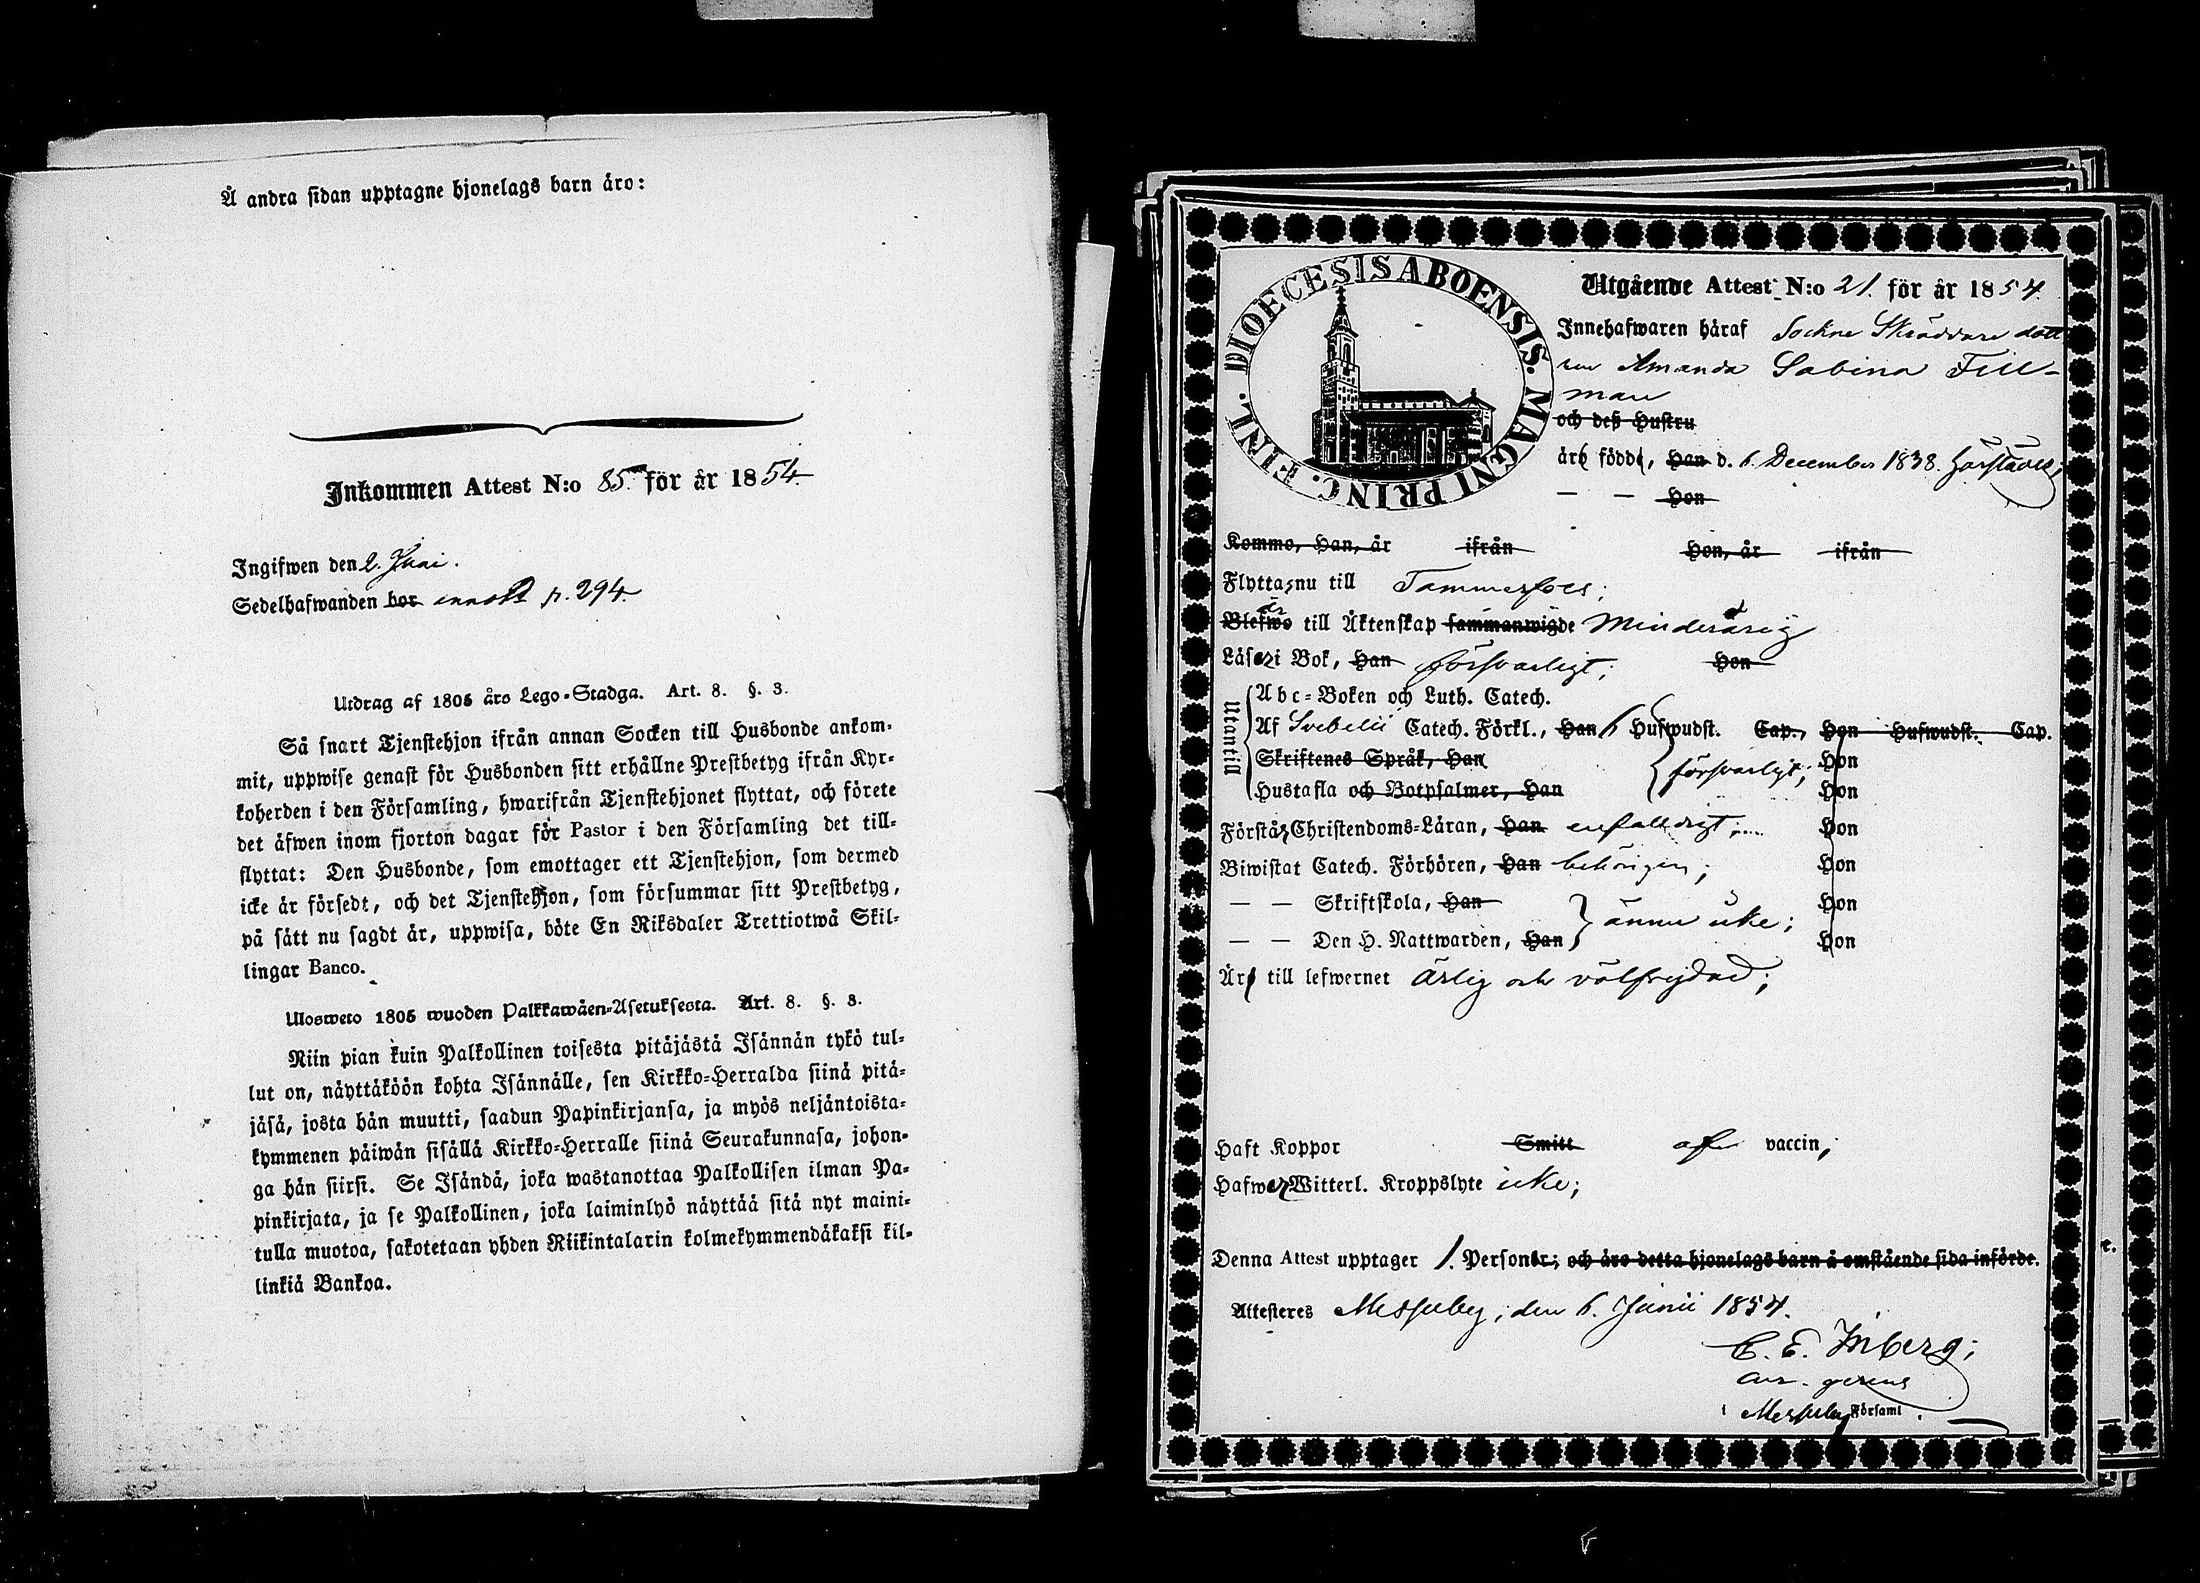 Å andra sidan upptagne hjonelags barn äro:
Inkommen Attest N:o 85. för år 1854.
Ingifwen den 2. Juni.
Sedelhafwanden bor p. 294.
Utdrag af 1805 års Lego-Stadga. Art. 8. §. 3.
Så snart Tjenstehjon ifrån annan Socken till Husbonde ankom-
mit, uppwise genast för Husbonden sitt erhållne Prestbetyg ifrån Kyr-
koherden i den Församling, hwarifrån Tjenstehjonet flyttat, och förete
det äfwen inom fjorton dagar för Pastor i den Församling det till-
flyttat: Den Husbonde, som emottager ett Tjenstehjon, som dermed
icke är försedt, och det Tjenstehjon, som försummar sitt Prestbetyg,
på sätt nu sagdt är, uppwisa, böte En Riksdaler Trettiotwå Skil-
lingar Banco.
Ulosweto 1805 wuoden Palkkawäen-Asetuksesta. Art. 8. §. 3.
Niin pian kuin Palkollinen toisesta pitäjästä Isännän tykö tul-
lut on, näyttäköön kohta Isännälle, sen Kirkko-Herralda siinä pitä-
jäsä, josta hän muutti, saadun Papinkirjansa, ja myös neljäntoista-
kymmenen päiwän sisällä Kirkko-Herralle siinä Seurakunnasa, johon-
ga hän siirsi. Se Isändä, joka wastanottaa Palkollisen ilman Pa-
pinkirjata, ja se Palkollinen, joka laiminlyö näyttää sitä nyt maini-
tulla muotoa, sakotetaan yhden Riikintalarin kolmekymmendäkaksi kil-
linkiä Bankoa.
DIOECESIS ABOENSIS. MAGNI PRINC. FINL.
Utgående Attest N:o 21. för år 1854.
Innehafwaren häraf Sockne Skräddare dott
ren Amanda Sabina Till-
man
och deß Hustru
äro födde, Han d. 6. December 1838. Härstädes;
— — Hon
Kommo, Han, år ifrån Hon, år ifrån
Flytta, nu till Tammerfors;
Blefwo är till Äktenskap sammanwigde Minderårig
Läser i Bok, Han försvarligt; Hon
Utantill
Abc-Boken och Luth. Catech.
Af Svebelii Catech. Förkl., Han 6 Hufwudst. Cap., Hon Hufwudst. Cap.
Skriftenes Språk, Han försvarligt; Hon
Hustafla och Botpsalmer, Han Hon
Förstår Christendoms-Läran, Han enfaldigt; Hon
Biwistat Catech. Förhören, Han behörigen; Hon
— — Skriftskola, Han ännu icke; Hon
— — Den H. Nattwarden, Han Hon
Äro till lefwernet ärlig och välfrejdad;
Haft Koppor Smitt af vaccin,
Hafwer Witterl. Kroppslyte icke;
Denna Attest upptager 1. Personer; och äro detta hjonelags barn å omstående sida införde.
Attesteres Messuby, den 6. Junii 1854.
C. E. Inberg;
cur. gerens
i Messuby Församl.